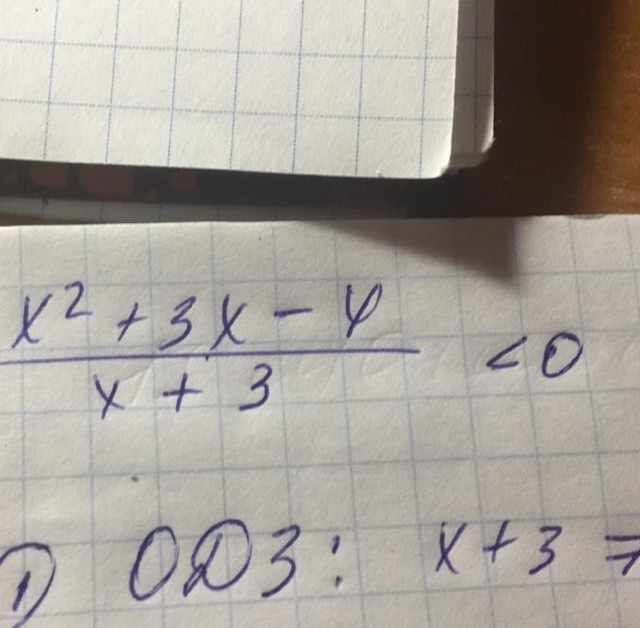 x² + 3x - 4
x + 3
< 0
1) ОДЗ: x + 3 ≠